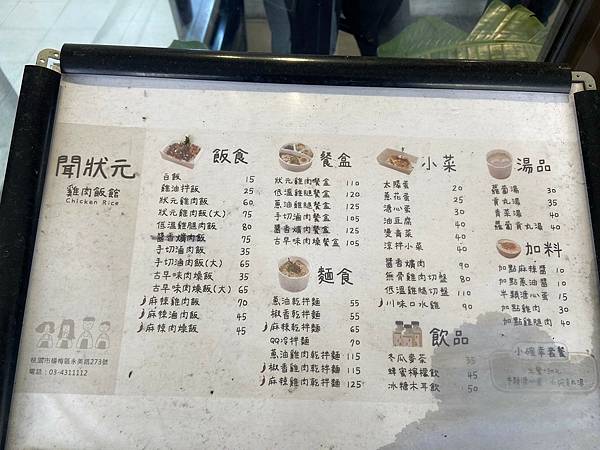 聞狀元
雞肉飯館
Chicken Rice
桃園市楊梅區永美路273號
電話：03-4311112
飯食
白飯 15
雞油拌飯 25
狀元雞肉飯 60
狀元雞肉飯(大) 75
低溫雞腿肉飯 80
醬香爌肉飯 75
手切滷肉飯 35
手切滷肉飯(大) 65
古早味肉燥飯 35
古早味肉燥飯(大) 65
麻辣雞肉飯 70
麻辣滷肉飯 45
麻辣肉燥飯 45
餐盒
狀元雞肉餐盒 110
低溫雞腿餐盒 120
蔥油雞腿餐盒 125
手切滷肉餐盒 105
醬香爌肉餐盒 125
古早味肉燥餐盒 105
麵食
蔥油乾拌麵 55
椒香乾拌麵 55
麻辣乾拌麵 65
QQ冷拌麵 50
蔥油雞肉乾拌麵 115
椒香雞肉乾拌麵 115
麻辣雞肉乾拌麵 125
小菜
太陽蛋 20
蔥花蛋 25
溏心蛋 30
油豆腐 40
燙青菜 40
涼拌小菜 40
醬香爌肉 90
無骨雞肉切盤 80
低溫雞腿切盤 110
川味口水雞 90
飲品
冬瓜麥茶 35
蜂蜜檸檬飲 45
冰糖木耳飲 50
湯品
蘿蔔湯 30
貢丸湯 35
青菜湯 40
蘿蔔貢丸湯 40
加料
加點麻辣醬 10
加點蔥油醬 10
半顆溏心蛋 15
加點雞肉 30
加點雞腿肉 40
小確幸套餐